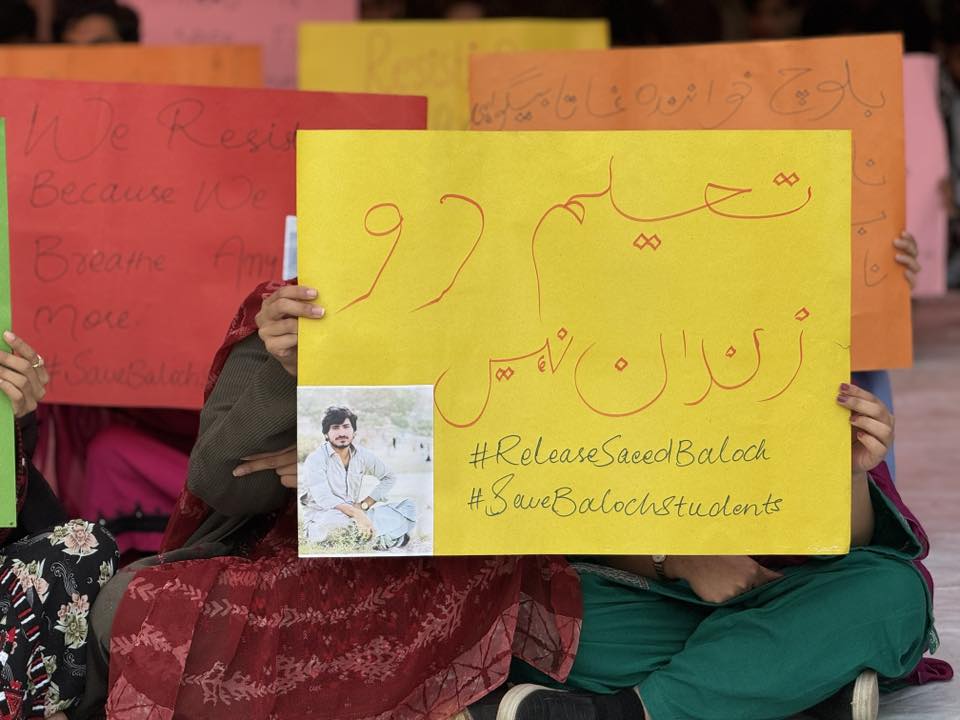 We Resis
Because We
Breathe Any
More.
#SaveBaloch
Resist
بلوچ
تعلیم دو
زندان نہیں
#ReleaseSaeedBaloch
#SaveBalochstudents